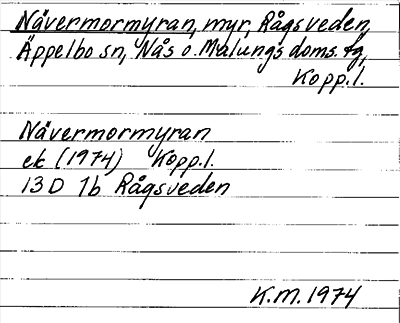 Nävermormyran, myr, Rågsveden,
Äppelbo sn, Nås o. Malungs doms. tg,
Kopp.l.
Nävermormyran
ek (1974) Kopp.l.
13D 7b Rågsveden
K.M. 1974